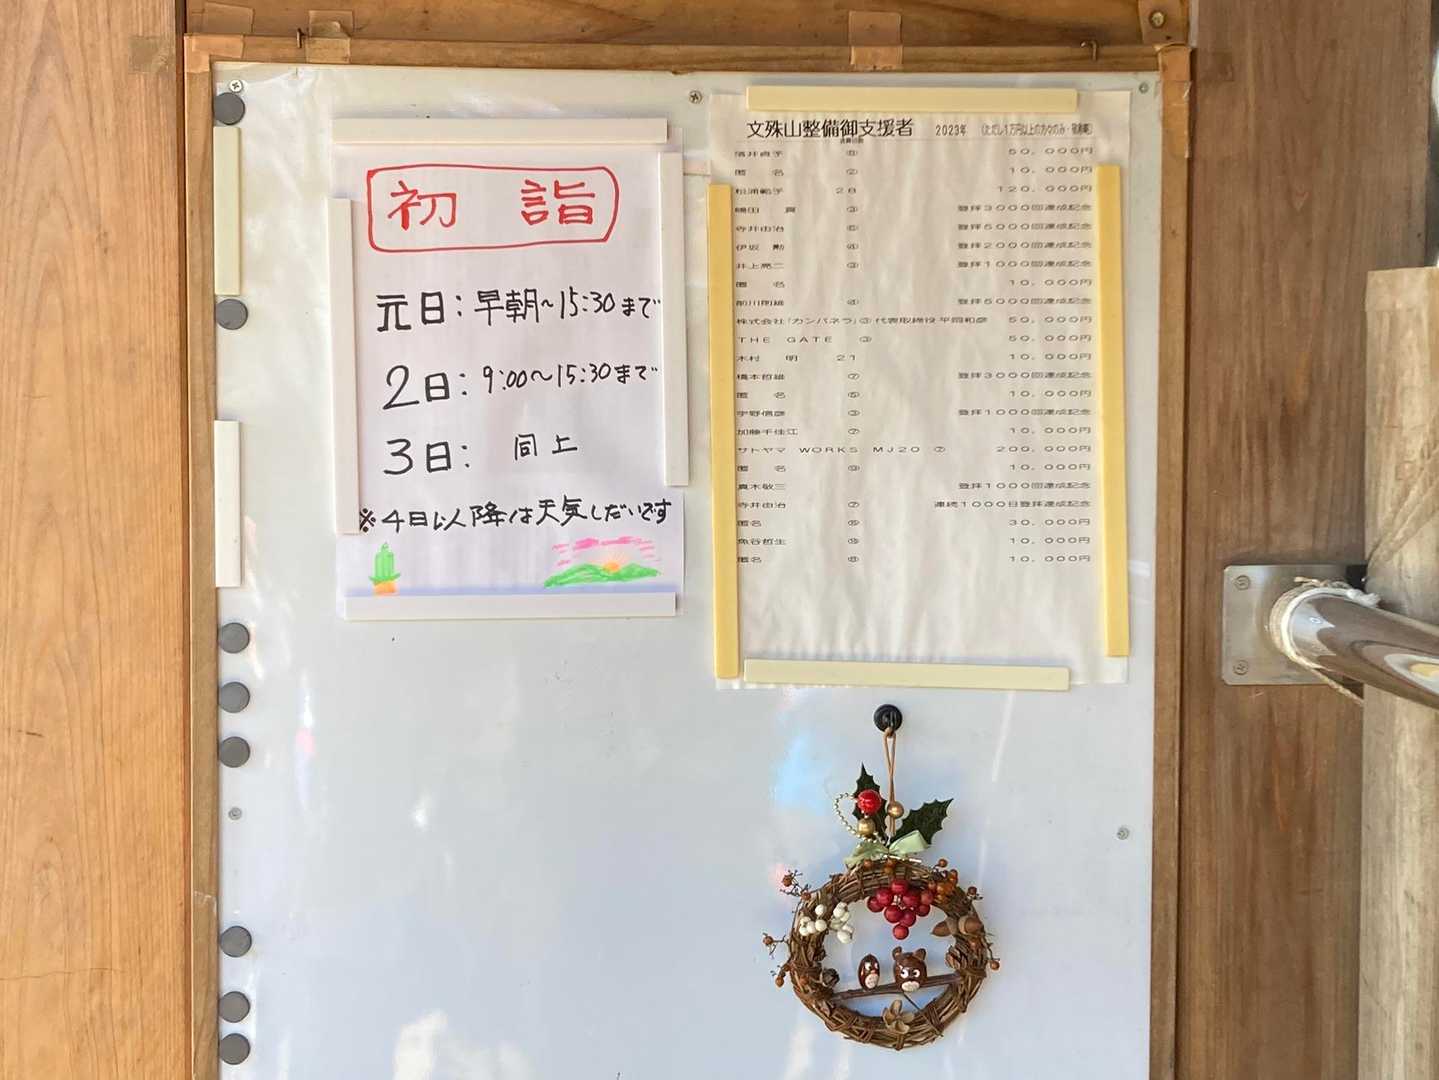 初 詣
元日: 早朝～15:30まで
2日: 9:00～15:30まで
3日: 同上
※4日以降は天気しだいです
文殊山整備御支援者 2023年 (ただし1万円以上の方々のみ・敬称略)
貞子 50,000円
匿 名 ② 10,000円
松浦範子 28 120,000円
嶋田 眞 ③ 登拝3000回達成記念
寺井由治 ⑥ 登拝5000回達成記念
伊坂 勲 ④ 登拝2000回達成記念
井上亮二 ③ 登拝1000回達成記念
匿 名 10,000円
前川 ④ 登拝5000回達成記念
株式会社「カンパネラ」③ 代表取締役 平岡和彦 50,000円
THE GATE ③ 50,000円
木村 明 21 10,000円
橋本哲雄 ⑦ 登拝3000回達成記念
匿 名 ⑥ 10,000円
宇野信彦 ③ 登拝1000回達成記念
加藤千佳江 ⑦ 10,000円
サトヤマ WORKS MJ20 ⑦ 200,000円
匿 名 ⑨ 10,000円
真木敬三 登拝1000回達成記念
寺井由治 ⑦ 連続1000日登拝達成記念
匿名 30,000円
魚谷哲生 10,000円
匿名 10,000円